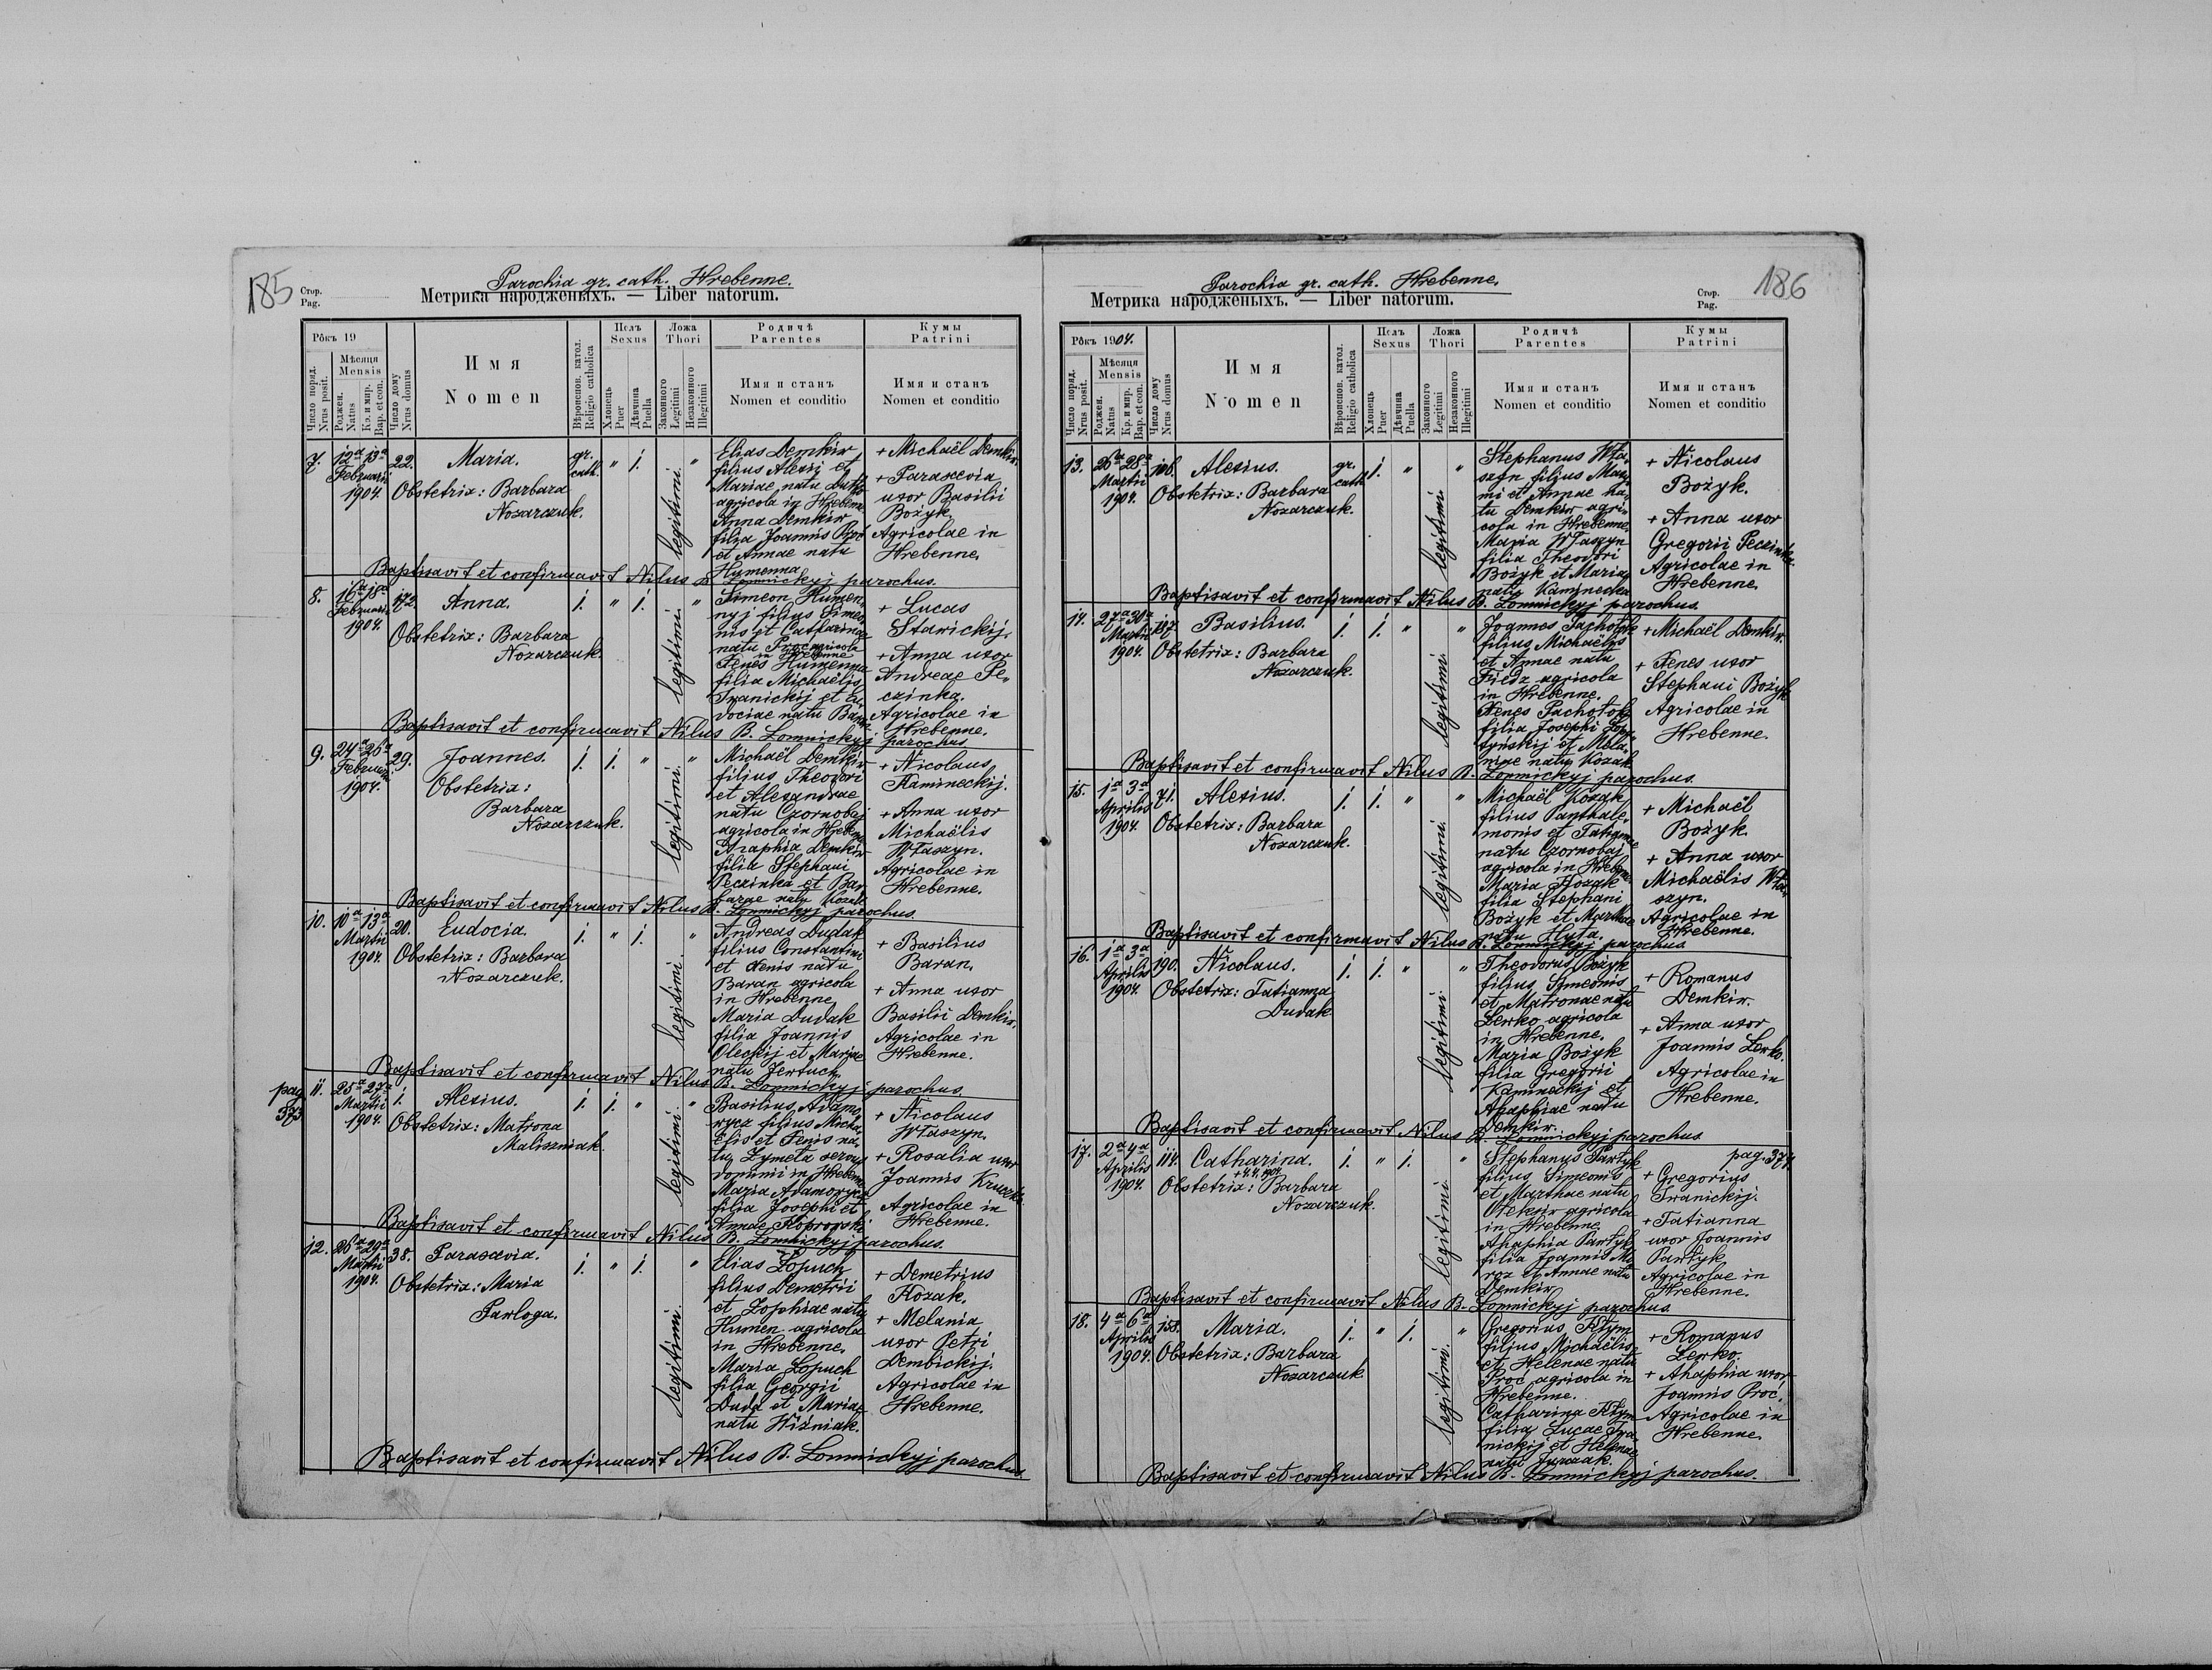 185
Стор.
Pag.
Parochia gr. cath. Hrebenne.
Метрика народженыхъ. — Liber natorum.
Рôкъ 19
Число поряд.
Nrus posit.
Мѣсяця
Mensis
Роджен.
Natus
Кр. и мир.
Bap. et con.
Число дому
Nrus domus
Имя
Nomen
Вѣроиспов. катол.
Religio catholica
Полъ
Sexus
Хлопець
Puer
Дѣвчина
Puella
Ложа
Thori
Законного
Legitimi
Незаконного
Illegitimi
Родичѣ
Parentes
Имя и станъ
Nomen et conditio
Кумы
Patrini
Имя и станъ
Nomen et conditio
7. 12a 13a 22. Maria. gr. cath. " 1. legitimi. "
Februarii
1904.
Obstetrix: Barbara
Nozarczuk.
Elias Demkiw
filius Alexii et
Mariae natu
agricola in Hrebenne
Anna Demkiw
filia Joannis Proć
et Annae natu
Humenna
+ Michaël Demkiw.
+ Parascevia
uxor Basilii
Bożyk
Agricolae in
Hrebenne.
Baptisavit et confirmavit Nilus B. Lomnickyj parochus.
8. 16a 18a 172. Anna. 1. " 1. legitimi. "
Februarii
1904.
Obstetrix: Barbara
Nozarczuk.
Simeon Humen-
nyj filius Simeo-
nis et Catharinae
natu Proć agricola
in Hrebenne
Xenes Humenna
filia Michaëlis
Iwanickij et Eu-
dociae natu Baran
+ Lucas
Stawickij.
+ Anna uxor
Andreae Pe-
czinka.
Agricolae in
Hrebenne.
Baptisavit et confirmavit Nilus B. Lomnickyj parochus
9. 24a 26a 29. Joannes. 1. 1. " legitimi. "
Februarii
1904.
Obstetrix:
Barbara
Nozarczuk.
Michaël Demkiw
filius Theodori
et Alexandrae
natu Czornobaj
agricola in Hrebenne
Ahaphia Demkiw
filia Stephani
Peczinka et Bar-
barae natu Kozak
+ Nicolaus
Kamineckij.
+ Anna uxor
Michaëlis
Właszyn.
Agricolae in
Hrebenne.
Baptisavit et confirmavit Nilus B. Lomnickyj parochus.
10. 10a 13a 20. Eudocia. 1. " 1. legitimi. "
Martii
1904.
Obstetrix: Barbara
Nozarczuk.
Andreas Dudak
filius Constantini
et Xenis natu
Baran agricola
in Hrebenne
Maria Dudak
filia Joannis
Oleckij et Mariae
natu Jertuch
+ Basilius
Baran.
+ Anna uxor
Basilii Demkiw.
Agricolae in
Hrebenne.
Baptisavit et confirmavit Nilus B. Lomnickyj parochus.
pag.
373
11. 25a 27a 1. Alexius. 1. 1. " legitimi. "
Martii
1904.
Obstetrix: Matrona
Maliszniak.
Basilius Adamo-
wycz filius Micha-
ëlis et Xenis na-
tu Zymeta servus
dominii in Hrebenne
Maria Adamowycz
filia Josephi et
Annae Koprowski
+ Nicolaus
Właszyn.
+ Rosalia uxor
Joannis
Agricolae in
Hrebenne.
Baptisavit et confirmavit Nilus B. Lomnickyj parochus.
12. 26a 29a 38. Parascevia. 1. " 1. legitimi. "
Martii
1904.
Obstetrix: Maria
Pawloga.
Elias Łopuch
filius Demetrii
et Zophiae natu
Humen. agricola
in Hrebenne.
Maria Łopuch
filia Georgii
Duda et Mariae
natu Wiźniak.
+ Demetrius
Kozak.
+ Melania
uxor Petri
Dembickij.
Agricolae in
Hrebenne.
Baptisavit et confirmavit Nilus B. Lomnickyj parochus
Parochia gr. cath. Hrebenne.
Метрика народженыхъ. — Liber natorum.
Стор.
Pag.
186
Рôкъ 1904.
Число поряд.
Nrus posit.
Мѣсяця
Mensis
Роджен.
Natus
Кр. и мир.
Bap. et con.
Число дому
Nrus domus
Имя
Nomen
Вѣроиспов. катол.
Religio catholica
Полъ
Sexus
Хлопець
Puer
Дѣвчина
Puella
Ложа
Thori
Законного
Legitimi
Незаконного
Illegitimi
Родичѣ
Parentes
Имя и станъ
Nomen et conditio
Кумы
Patrini
Имя и станъ
Nomen et conditio
13. 26a 28a 106. Alexius. gr. cath. 1. " legitimi. "
Martii
1904.
Obstetrix: Barbara
Nozarczuk.
Stephanus Wła-
szyn filius Maxi-
mi et Annae na-
tu Demkiw agri-
cola in Hrebenne.
Maria Właszyn
filia Theodori
Bożyk et Mariae
natu Kaminecka
+ Nicolaus
Bożyk.
+ Anna uxor
Gregorii Peczinka.
Agricolae in
Hrebenne.
Baptisavit et confirmavit Nilus B. Lomnickyj parochus.
14. 27a 30a 187. Basilius. 1. 1. " legitimi. "
Martii
1904.
Obstetrix: Barbara
Nozarczuk.
Joannes Pachotok
filius Michaëlis
et Annae natu
Fiedz agricola
in Hrebenne.
Xenes Pachotok
filia Josephi
et Mela-
niae natu Kozak
+ Michaël Demkiw.
+ Xenes uxor
Stephani Bożyk
Agricolae in
Hrebenne.
Baptisavit et confirmavit Nilus B. Lomnickyj parochus.
15. 1a 3a 71. Alexius. 1. 1. " legitimi. "
Aprilis
1904.
Obstetrix: Barbara
Nozarczuk.
Michaël Kozak
filius Panthale-
monis et Tatiannae
natu Czornobaj
agricola in Hrebenne.
Maria Kozak
filia Stephani
Bożyk et Marthae
natu Huta.
+ Michaël
Bożyk.
+ Anna uxor
Michaëlis Wła-
szyn.
Agricolae in
Hrebenne.
Baptisavit et confirmavit Nilus B. Lomnickyj parochus
16. 1a 3a 190. Nicolaus. 1. 1. " legitimi. "
Aprilis
1904.
Obstetrix: Tatianna
Dudak
Theodorus Bożyk
filius Simeonis
et Matronae natu
Lewko agricola
in Hrebenne.
Maria Bożyk
filia Gregorii
Kamineckij et
Ahaphiae natu
Demkiw.
+ Romanus
Demkiw.
+ Anna uxor
Joannis Lewko.
Agricolae in
Hrebenne.
Baptisavit et confirmavit Nilus B. Lomnickyj parochus
17. 2a 4a 114. Catharina. 1. " 1. legitimi "
Aprilis
1904.
+ 4.4.1904
Obstetrix: Barbara
Nozarczuk.
pag. 374.
Stephanus Pawtyk
filius Simeonis
et Marthae natu
Oleksiw agricola
in Hrebenne
Ahaphia Pawtyk
filia Joannis Mo-
roz et Annae natu
Demkiw
+ Gregorius
Iwanickij.
+ Tatianna
uxor Joannis
Pawtyk
Agricolae in
Hrebenne.
Baptisavit et confirmavit Nilus B. Lomnickyj parochus.
18. 4a 6a 158. Maria. 1. " 1. legitimi. "
Aprilis
1904.
Obstetrix: Barbara
Nozarczuk
Gregorius Kłym
filius Michaëlis
et Helenae natu
Proć agricola in
Hrebenne.
Catharina Kłym
filia Lucae Iwa-
nickij et Helenae
natu Jurczak.
+ Romanus
Lewko.
+ Ahaphia uxor
Joannis Proć.
Agricolae in
Hrebenne.
Baptisavit et confirmavit Nilus B. Lomnickyj parochus.